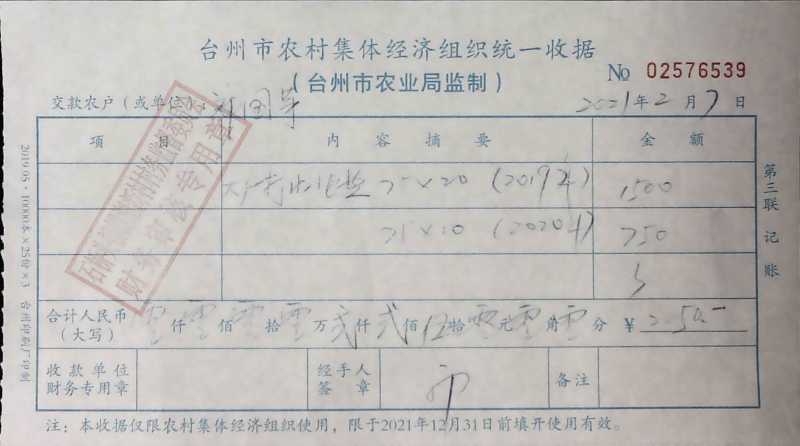 台州市农村集体经济组织统一收据
(台州市农业局监制)
No 02576539
交款农户(或单位):
2021年2月7日
项 目 内 容 摘 要 金 额
75×20 (2019年) 1500
75×10 (2020年) 750
合计人民币(大写) 零仟零佰零拾零万贰仟贰佰伍拾零元零角零分 ¥
收款单位财务专用章 经手人签章 备注
注:本收据仅限农村集体经济组织使用,限于2021年12月31日前填开使用有效。
第三联 记账
2019.05·10000本×25份×3 台州印刷厂印制
财务审核专用章